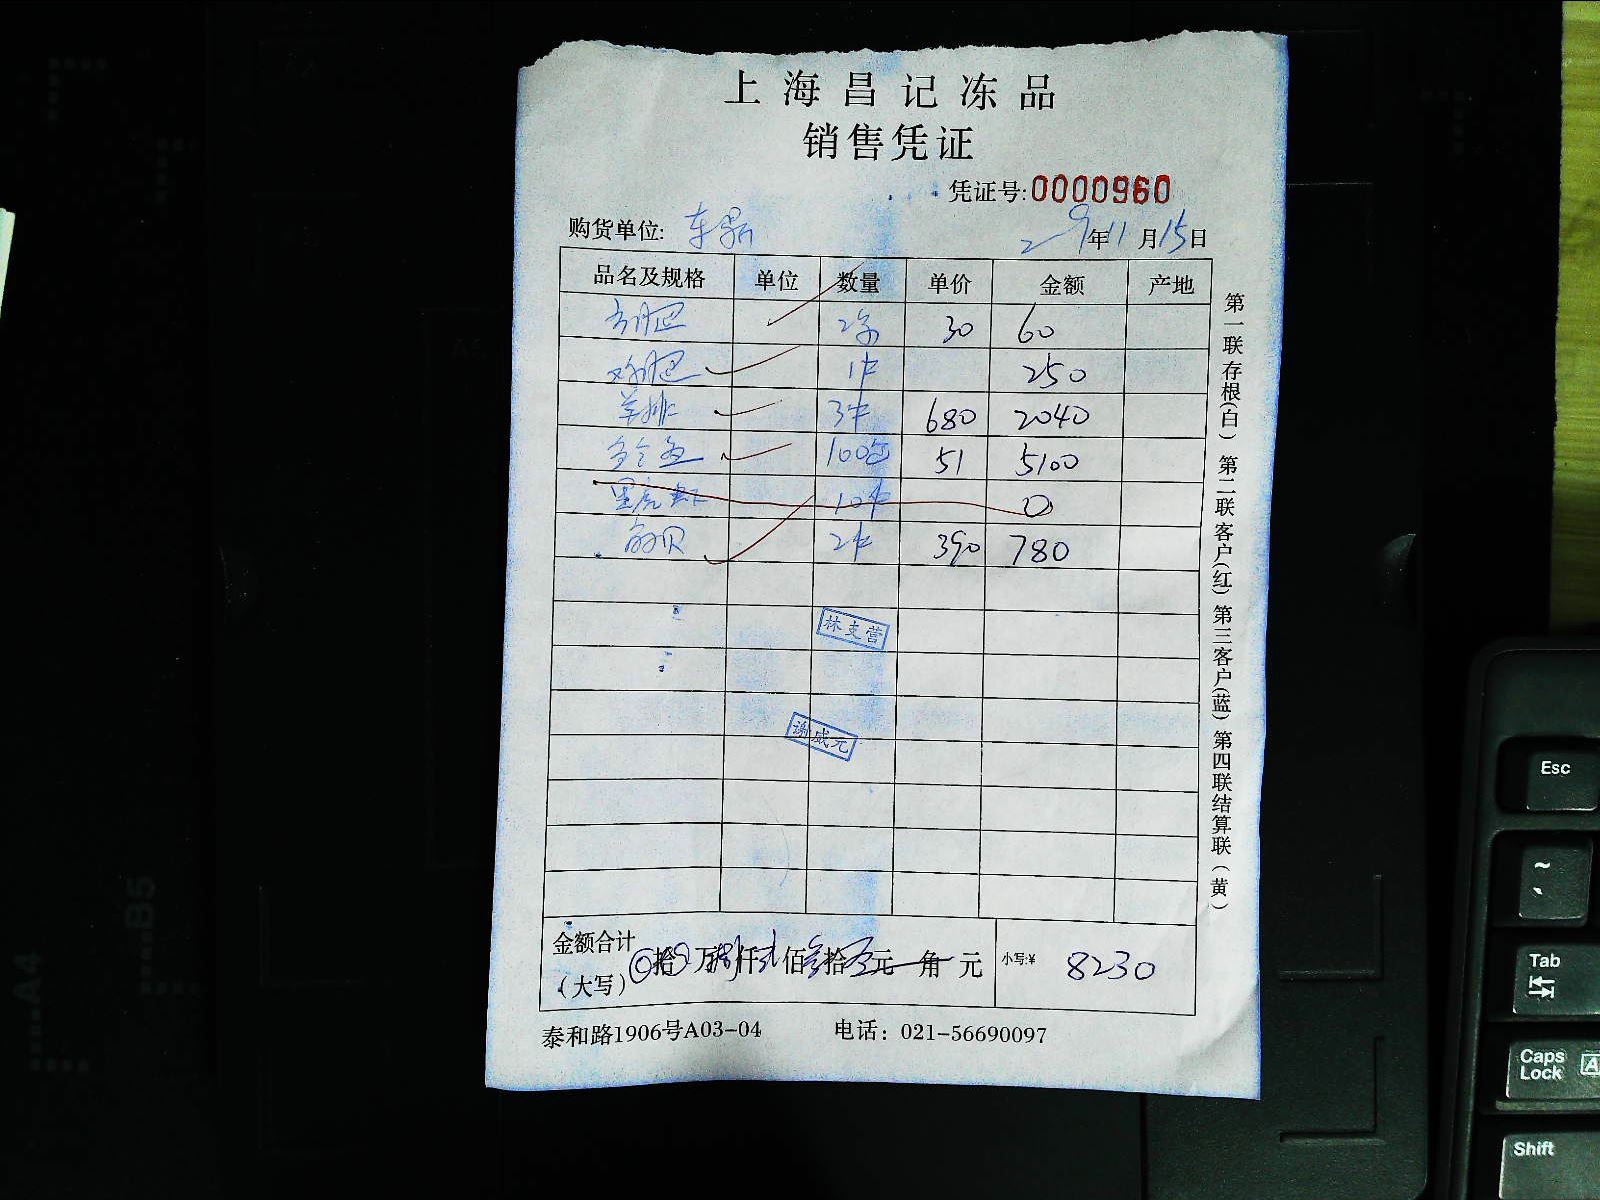 上海昌记冻品
销售凭证
凭证号:0000960
购货单位: 29年11月15日
品名及规格 单位 数量 单价 金额 产地
2 30 60
1件 250
羊排 3件 680 2040
多宝鱼 100包 51 5100
黑虎虾 10件 0
贝 2件 390 780
林支营
谢成元
金额合计
(大写) 拾 万捌仟贰佰叁拾 元 角 元 小写:¥ 8230
泰和路1906号A03-04 电话: 021-56690097
第一联存根(白) 第二联客户(红) 第三客户(蓝) 第四联结算联(黄)
Esc
~
Tab
Caps Lock A
Shift
A4
B5